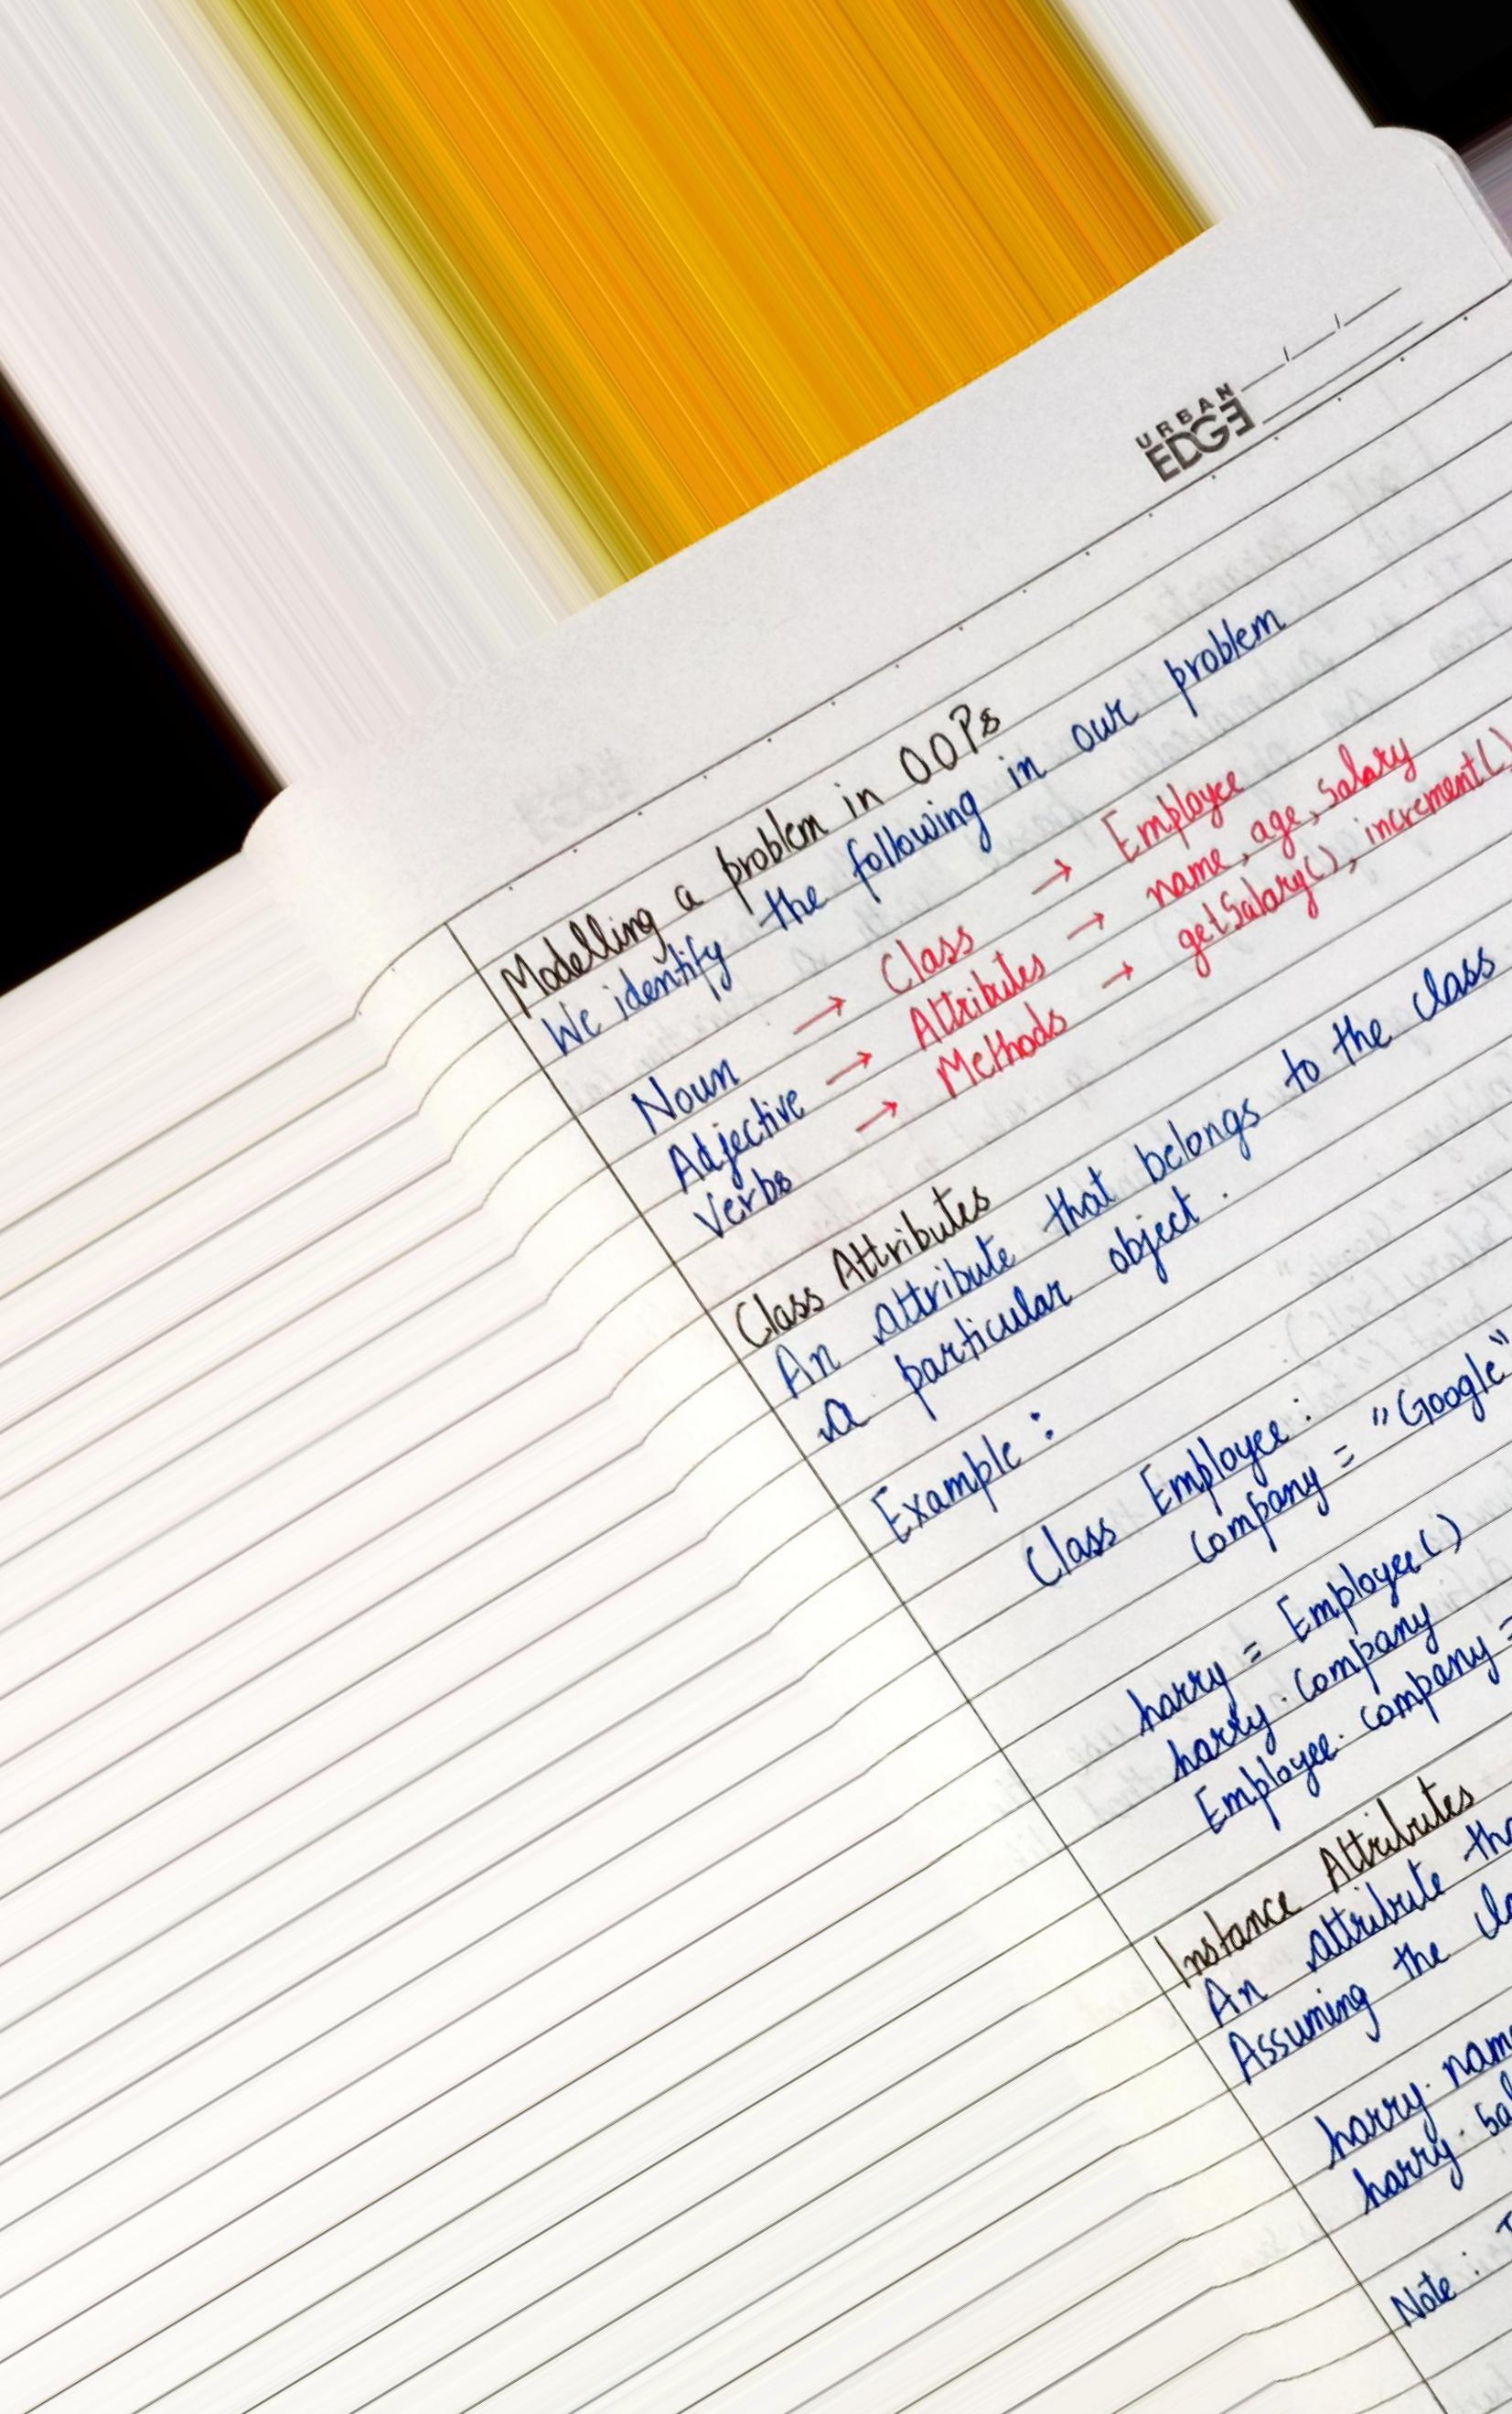 URBAN
EDGE
Modelling a problem in OOPs
We identify the following in our problem
Noun → Class → Employee
Adjective → Attributes → name, age, salary
Verbs → Methods → getSalary(), increment()
Class Attributes
An attribute that belongs to the class
a particular object.
Example :
Class Employee :
Company = "Google"
harry = Employee()
harry.Company
Employee.company =
Instance Attributes
An attribute
Assuming the
harry.
harry.
Note :